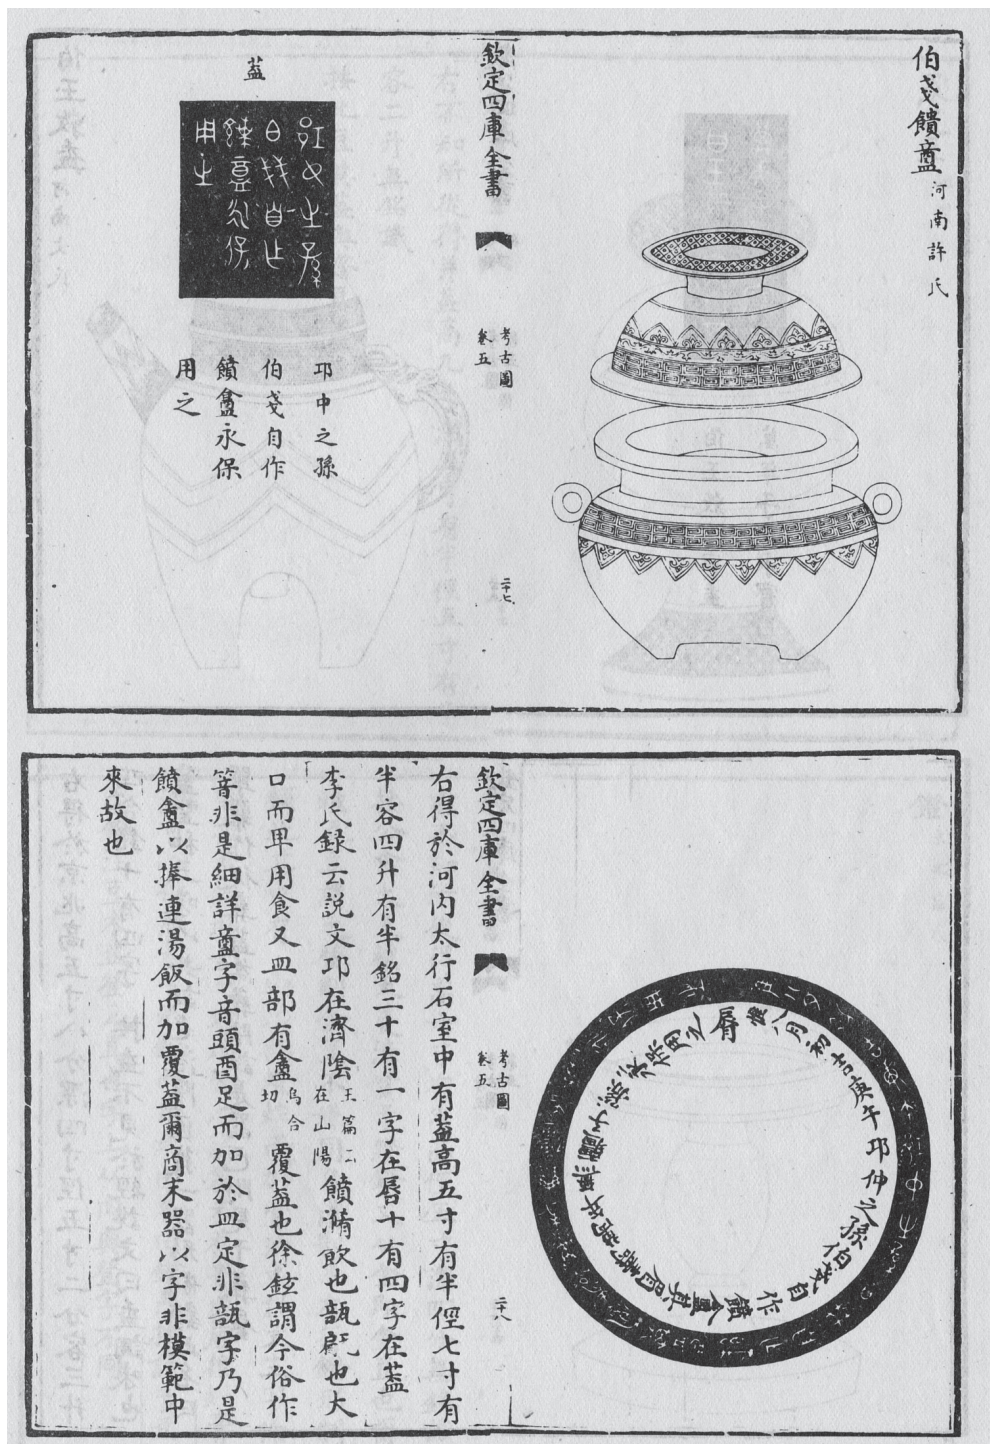 伯戔饋盦 河南許氏
欽定四庫全書
考古圖
卷五
二十七
蓋
邛中之孫
伯戔自作
饙盦永保
用之
脣
八月初吉庚午邛仲之孫伯戔自作饙盦其眉壽萬年無疆子孫永保用之
欽定四庫全書
考古圖
卷五
二十八
右得於河内太行石室中有蓋高五寸有半徑七寸有
半容四升有半銘三十有一字在唇十有四字在蓋
李氏録云説文邛在濟陰玉篇云在山陽饙滫飲也瓿甂也大
口而卑用食又皿部有盦烏合切覆蓋也徐鉉謂今俗作
罯非是細詳盦字音頭酉足而加於皿定非瓿字乃是
饙盦以捧連湯飯而加覆蓋爾商末器以字非模範中
來故也